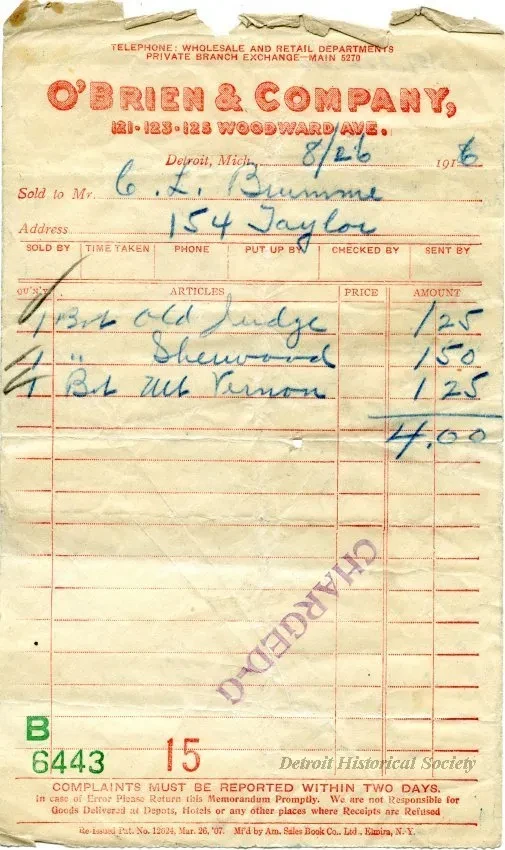 TELEPHONE: WHOLESALE AND RETAIL DEPARTMENTS
PRIVATE BRANCH EXCHANGE—MAIN 5270
O'BRIEN & COMPANY,
121-123-125 WOODWARD AVE.
Detroit, Mich. 8/26 1916
Sold to Mr. C. L. Brumme
Address 154 Taylor
SOLD BY TIME TAKEN PHONE PUT UP BY CHECKED BY SENT BY
QU'N'Y ARTICLES PRICE AMOUNT
1 Bot Old Judge 1 25
1 " Sherwood 1 50
1 Bot Mt Vernon 1 25
4.00
CHARGED-G
B
6443 15
Detroit Historical Society
COMPLAINTS MUST BE REPORTED WITHIN TWO DAYS.
In case of Error Please Return this Memorandum Promptly. We are not Responsible for
Goods Delivered at Depots, Hotels or any other places where Receipts are Refused
Re-issued Pat. No. 12024, Mar. 26, '07. M'f'd by Am. Sales Book Co., Ltd., Elmira, N. Y.